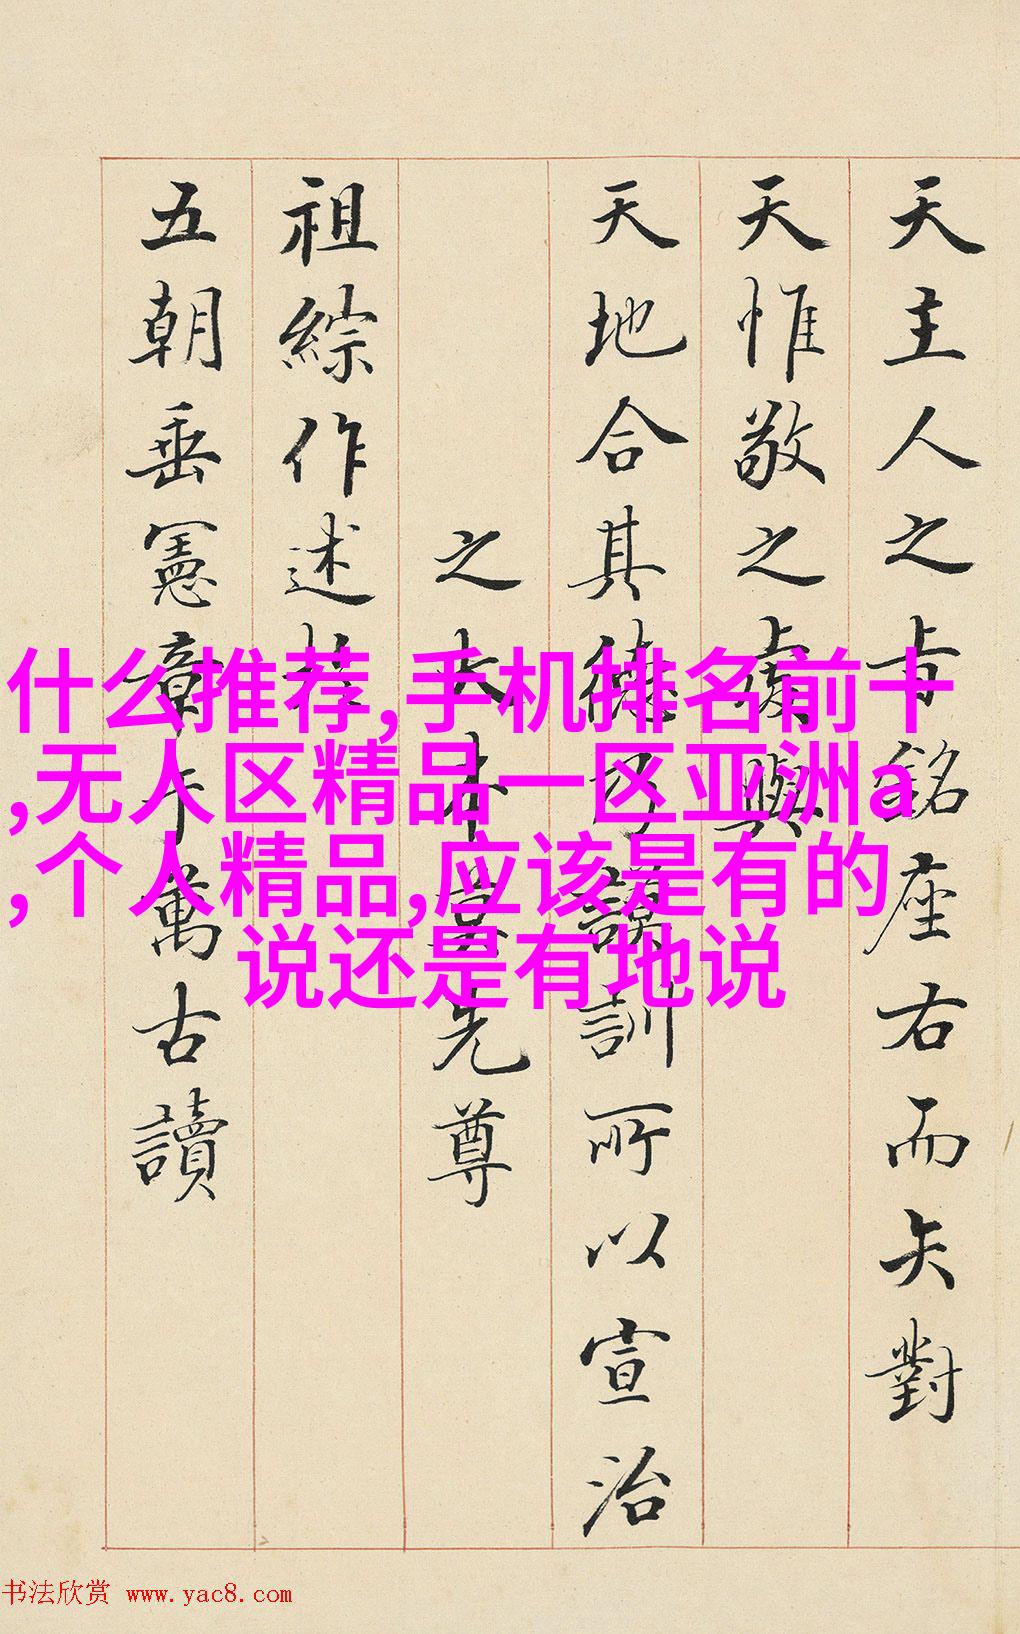 天主人之占銘座右而矢對
天惟敬之處與
天地合其德乃謨訓所以宣治
之大本自先尊
祖綜作述於
五朝垂憲章千萬古讀
什么推荐,手机排名前十
,无人区精品一区亚洲a
,个人精品,应该是有的
说还是有地说
书法欣赏 www.yac8.com